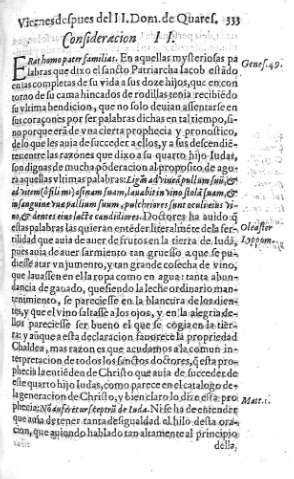 Viernes despues del II. Dom. de Quares. 333
Consideracion II.
ERat homo pater familias. En aquellas mysteriosas pa Genes. 49.
labras que dixo el sancto Patriarcha Iacob estãdo
en ias completas de su vida a sus doze hijos, que en con
torno de su cama hincados de rodillas tenia recibiẽdo
su vltima bendicion, que no solo deuian assentarse en
sus coraçones por ser palabras dichas en tal tiempo, si-
no porque erã de vna cierta prophecia y pronostico,
de lo que les auia de succeder a ellos, y a sus descendiẽ-
tes: entre las razones que dixo a su quarto hijo Iudas,
son dignas de mucha põderacion al proposito de ago-
ra aquellas vltimas palabras: Ligãs ad vineã pullum suũ, &
ad vitem (ô fili mi) asinam suam, lauabit in vino stolã suam, &
in sanguine vuæ pallium suum, pulchriores sunt oculi eius vi-
no, & dentes eius lacte candidiores. Doctores ha auido q̃ Oleaster
estas palabras las quieran entẽder literalmẽte de la fer- Lyppom.
tilidad que auia de auer de frutos en la tierra de Iudã,
pues auia de auer sarmiento tan gruesso a que se pu-
diesse atar vn jumento, y tan grande cosecha de vino,
que lauassen en el la ropa como en agua: tanta abun-
dancia de ganado, que siendo la leche ordinario man-
tenimiento, se pareciesse en la blancura de los dien-
tes, y que el vino saltasse a los ojos, y en la alegria de-
llos pareciesse ser bueno el que se cogia en la tier-
ra: y aunque a esta declaracion fauorece la propriedad
Chaldea, mas razon es que acudamos a la comun in-
terpretacion de todos los sanctos doctores, q̃ esta pro-
phecia la entiẽden de Christo que auia de succeder de
este quarto hijo Iudas, como parece en el catalogo de
la generacion de Christo, y bien claro lo dize esta pro Matt. 1.
phecia: Nõ auferetur sceptrũ de Iuda. Ni se ha de entender
que auia de tener tanta desigualdad el hilo desta ora-
cion, que auiendo hablado tan altamente al principio
della,